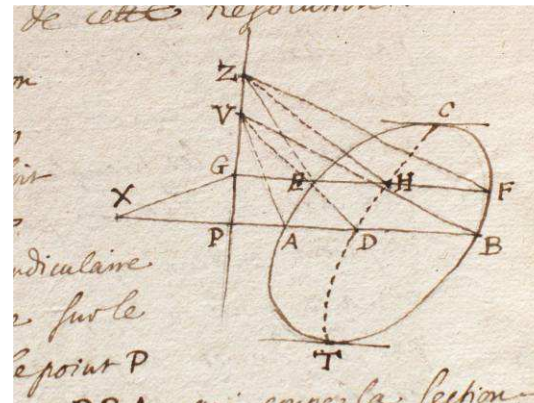 de cette Resolution.
Z
C
V
G
E
H
F
X
P
A
D
B
ndiculaire
sur le
le point P
T
la Section